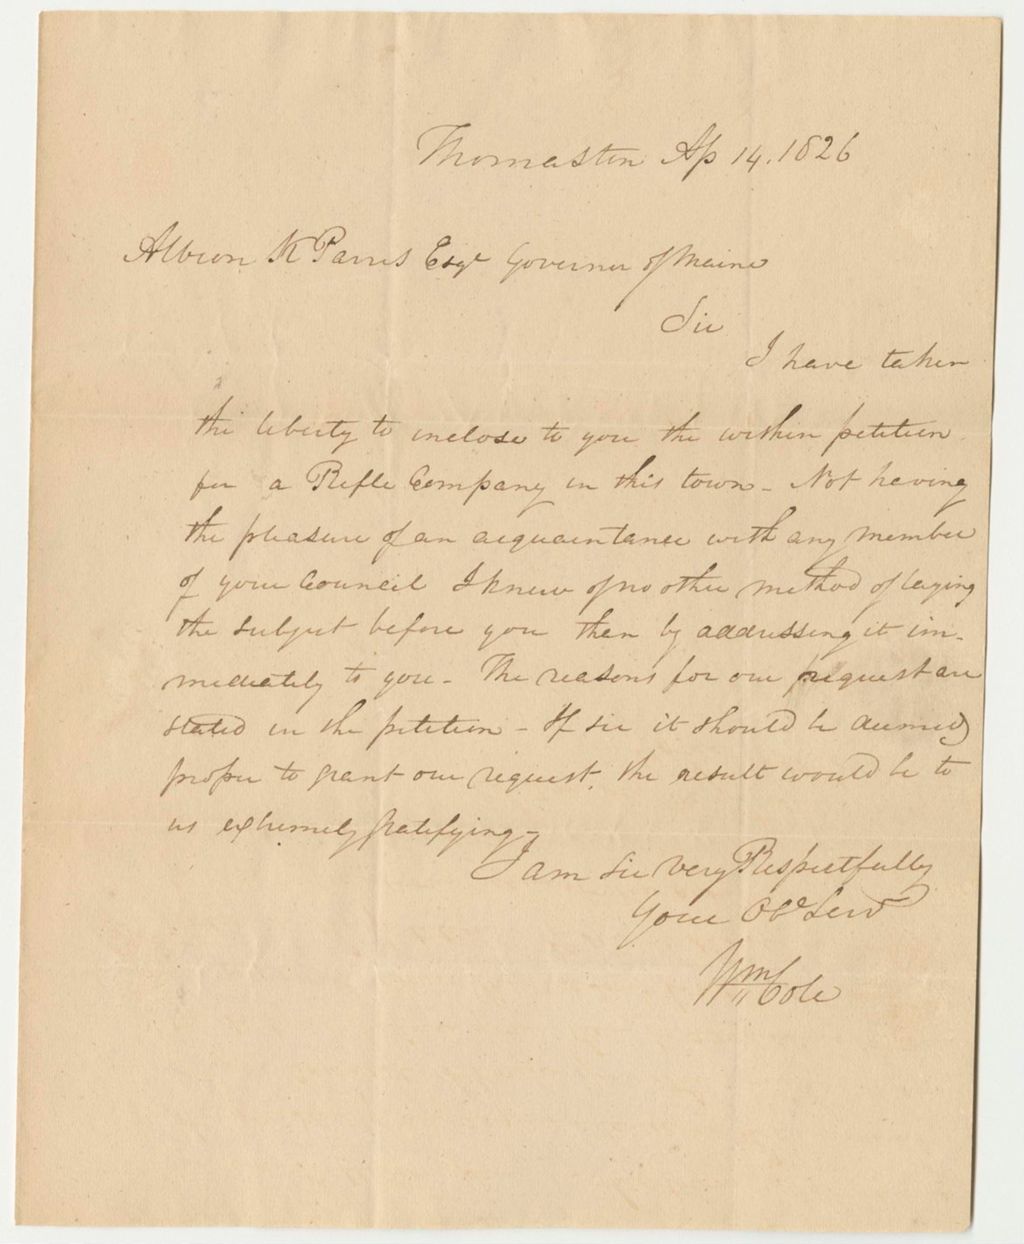 Thomaston Ap 14. 1826
Albion K Parris Esqr Governor of Maine
Sir
I have taken
the liberty to inclose to you the within petition
for a Rifle Company in this town - Not having
the pleasure of an acquaintance with any member
of your Council I knew of no other method of laying
the subject before you then by addressing it im-
mediately to you - The reasons for our request are
stated in the petition - If sir it should be deemed
proper to grant our request, the result would be to
us extremely gratifying -
I am Sir Very Respectfully
Your Obt Servt
Wm Cole